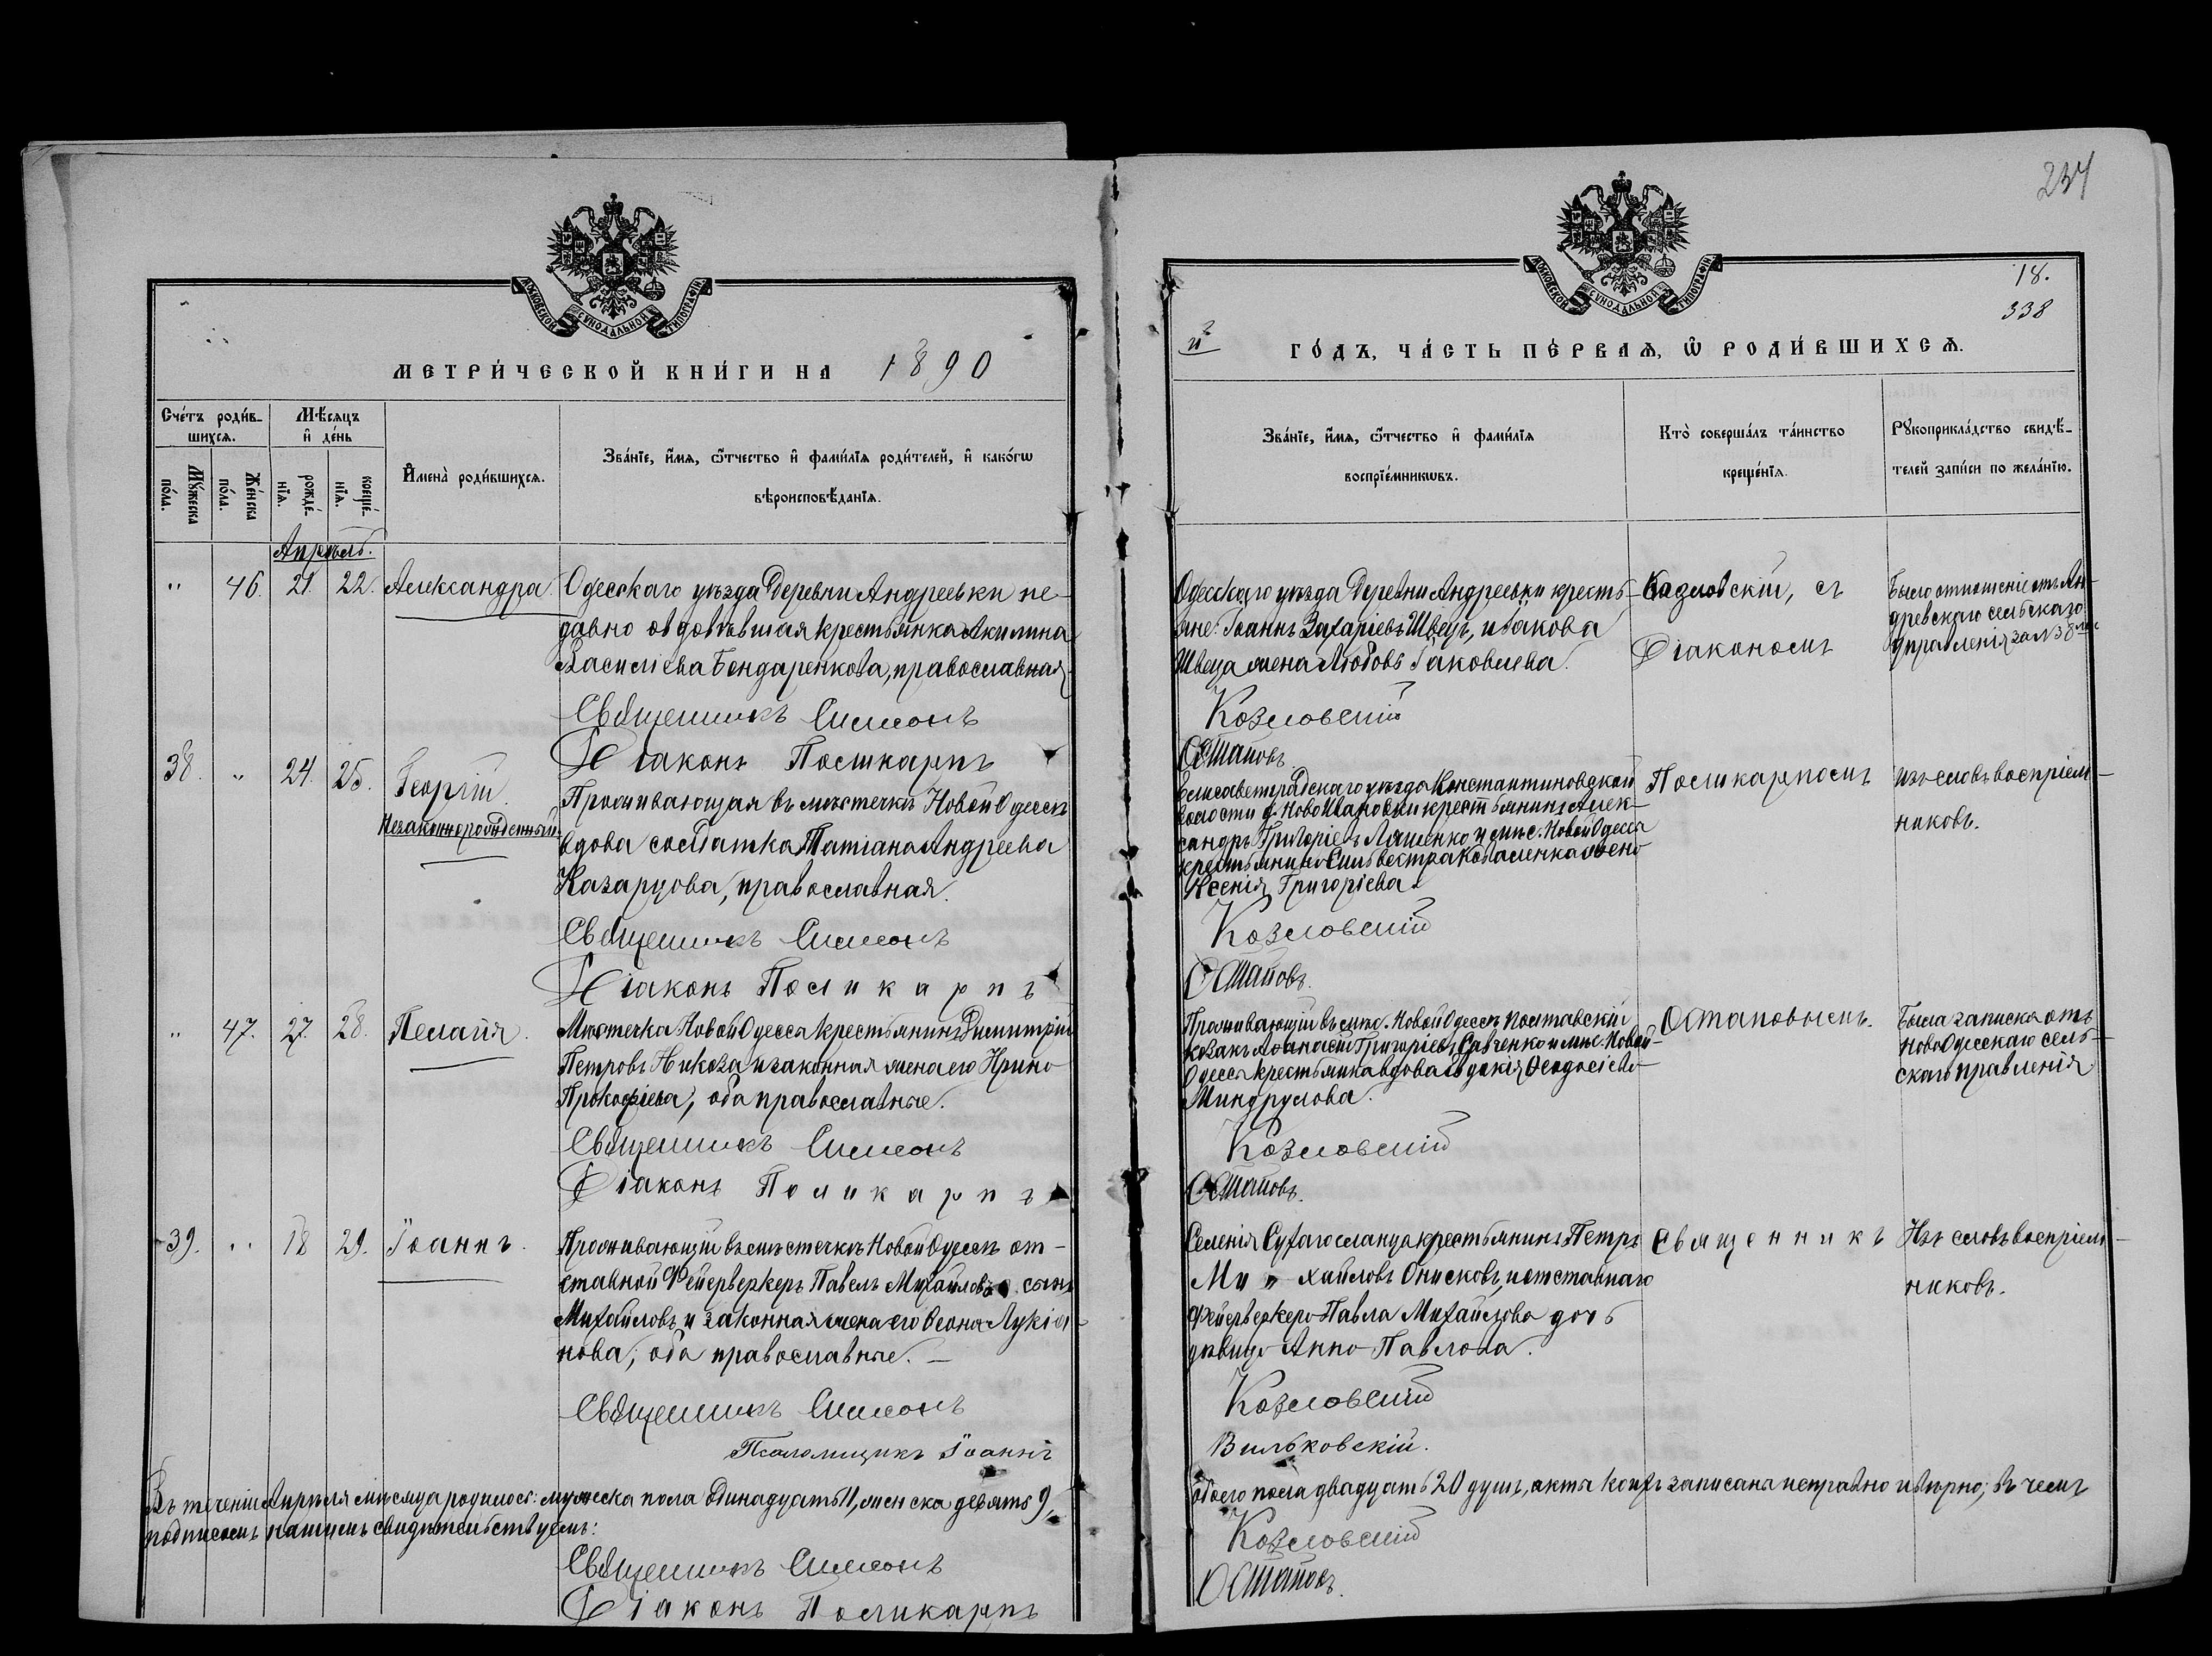 234
МОСКОВСКОЙ СѴНОДАЛЬНОЙ ТИПОГРАФІИ
МЕТРИ́ЧЕСКОЙ КНИ́ГИ НА 1890
Сче́тъ роди́в-
шихсѧ.
Мѣ́сѧцъ
и҆ де́нь
Мꙋ́жеска
по́ла.
Же́нска
по́ла.
рожде́-
нїѧ.
креще́-
нїѧ.
И҆мена̀ роди́вшихсѧ.
Зва́нїе, и҆́мѧ, ѻ҆́тчество и҆ фамѝлїѧ роди́телей, и҆ како́гѡ
вѣроисповѣ́данїѧ.
Апрѣль.
" 46. 21. 22. Александра.
Одесскаго уѣзда деревни Андреевки не-
давно овдовѣвшая крестьянка Акилина
Василіева Бондаренкова, православная
Священникъ Симеонъ
Діаконъ Поликарпъ
38. " 24. 25. Георгій
Незаконнорожденный
Проживающая въ мѣстечкѣ Новой Одессѣ
вдова солдатка Татіана Андреева
Казарцова, православная.
Священникъ Симеонъ
Діаконъ Поликарпъ
" 47. 27. 28. Пелагія.
Мѣстечка Новой Одесса крестьянинъ Димитрій
Петровъ Никоза и законная жена его Ирина
Прокофіева, оба православные.
Священникъ Симеонъ
Діаконъ Поликарпъ
39. " 18 29. Іоаннъ.
Проживающій въ мѣстечкѣ Новой Одессѣ от-
ставной Фейерверкеръ Павелъ Михайловъ сынъ
Михайловъ и законная жена его Ѳеона Лукіа-
нова, оба православные.
Священникъ Симеонъ
Псаломщикъ Іоаннъ
Въ теченіи Апрѣля мѣсяца родилось: мужеска пола одинадцать 11, женска девять 9,
подписомъ нашимъ свидѣтельствуемъ:
Священникъ Симеонъ
Діаконъ Поликарпъ
МОСКОВСКОЙ СѴНОДАЛЬНОЙ ТИПОГРАФІИ
18.
338
ГО́ДЪ, ЧА́СТЬ ПЕ́РВАѦ, Ѡ҆ РОДИ́ВШИХСѦ.
Зва́нїе, и҆́мѧ, ѻ҆́тчество и҆ фамѝлїѧ
воспрїе́мникѡвъ.
Кто̀ соверша́лъ та́инство
креще́нїѧ.
Рꙋкоприкла́дство свидѣ́-
телей за́писи по жела́нїю.
Одесскаго уѣзда деревни Андреевки кресть-
яне: Іоаннъ Захаріевъ Швецъ, и Іакова
Швеца жена Любовь Іаковлева.
Козловскій, съ
Діакономъ
Было отношеніе отъ Ан-
древскаго сельскаго
управленія за № 38
Козловскій
Остаповъ.
Елисаветградскаго уѣзда Константиновской
волости д. Новоивановки крестьянинъ Алек-
сандръ Григоріевъ Ляшенко и мѣс. Новой Одесса
крестьянина Сильвестра Коваленка жена
Ксенія Григоріева.
Поликарпомъ
Изъ словъ воспріем-
никовъ.
Козловскій
Остаповъ.
Проживающій въ мѣс. Новой Одессѣ полтавскій
козакъ Аѳанасій Григоріевъ Савченко и мѣс. Новой-
Одесса крестьянка вдова Евдокія Ѳеодосіева
Миндрулова.
Остаповымъ.
Была записка отъ
Новоодесскаго сель-
скаго правленія
Козловскій
Остаповъ.
Селенія Сухаго еланца крестьянинъ Петръ
Ми " хайловъ Онисковъ, и отставнаго
Фейерверкера Павла Михайлова дочь
дѣвица Анна Павлова.
Священникъ
Изъ словъ воспріем-
никовъ.
Козловскій
Вильковскій.
обоего пола двадцать 20 душъ, акты коихъ записаны исправно и вѣрно; въ чемъ
Козловскій
Остаповъ.